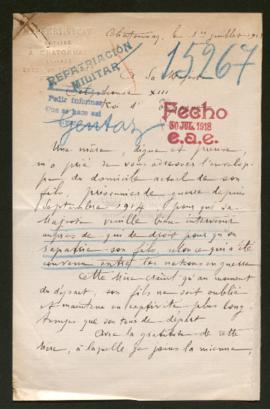 NOTAIRE
A CHATONNAY
Chatonnay, le 1er juillet 1918
15267
REPATRIACIÓN
MILITAR
A Sa Majesté
Alphonse XIII
Pedir informes
Roi d'
Gentaz
Fecho
30 JUL. 1918
e.a.e.
Une mère, digne et pieuse,
m'a prié de vous adresser l'envelop-
pe du domicile actuel de son
fils, prisonnier de guerre depuis
septembre 1914, pour que sa
Majesté veuille bien intervenir
auprès de qui de droit pour qu'on
rapatrie son fils, selon ce qui a été
convenu entre les nations en guerre.
Cette mère craint qu'au moment
du départ, son fils ne soit oublié
et maintenu en captivité plus long
temps que son tour de départ
Avec la gratitude de cette
mère, à laquelle je joins la mienne,